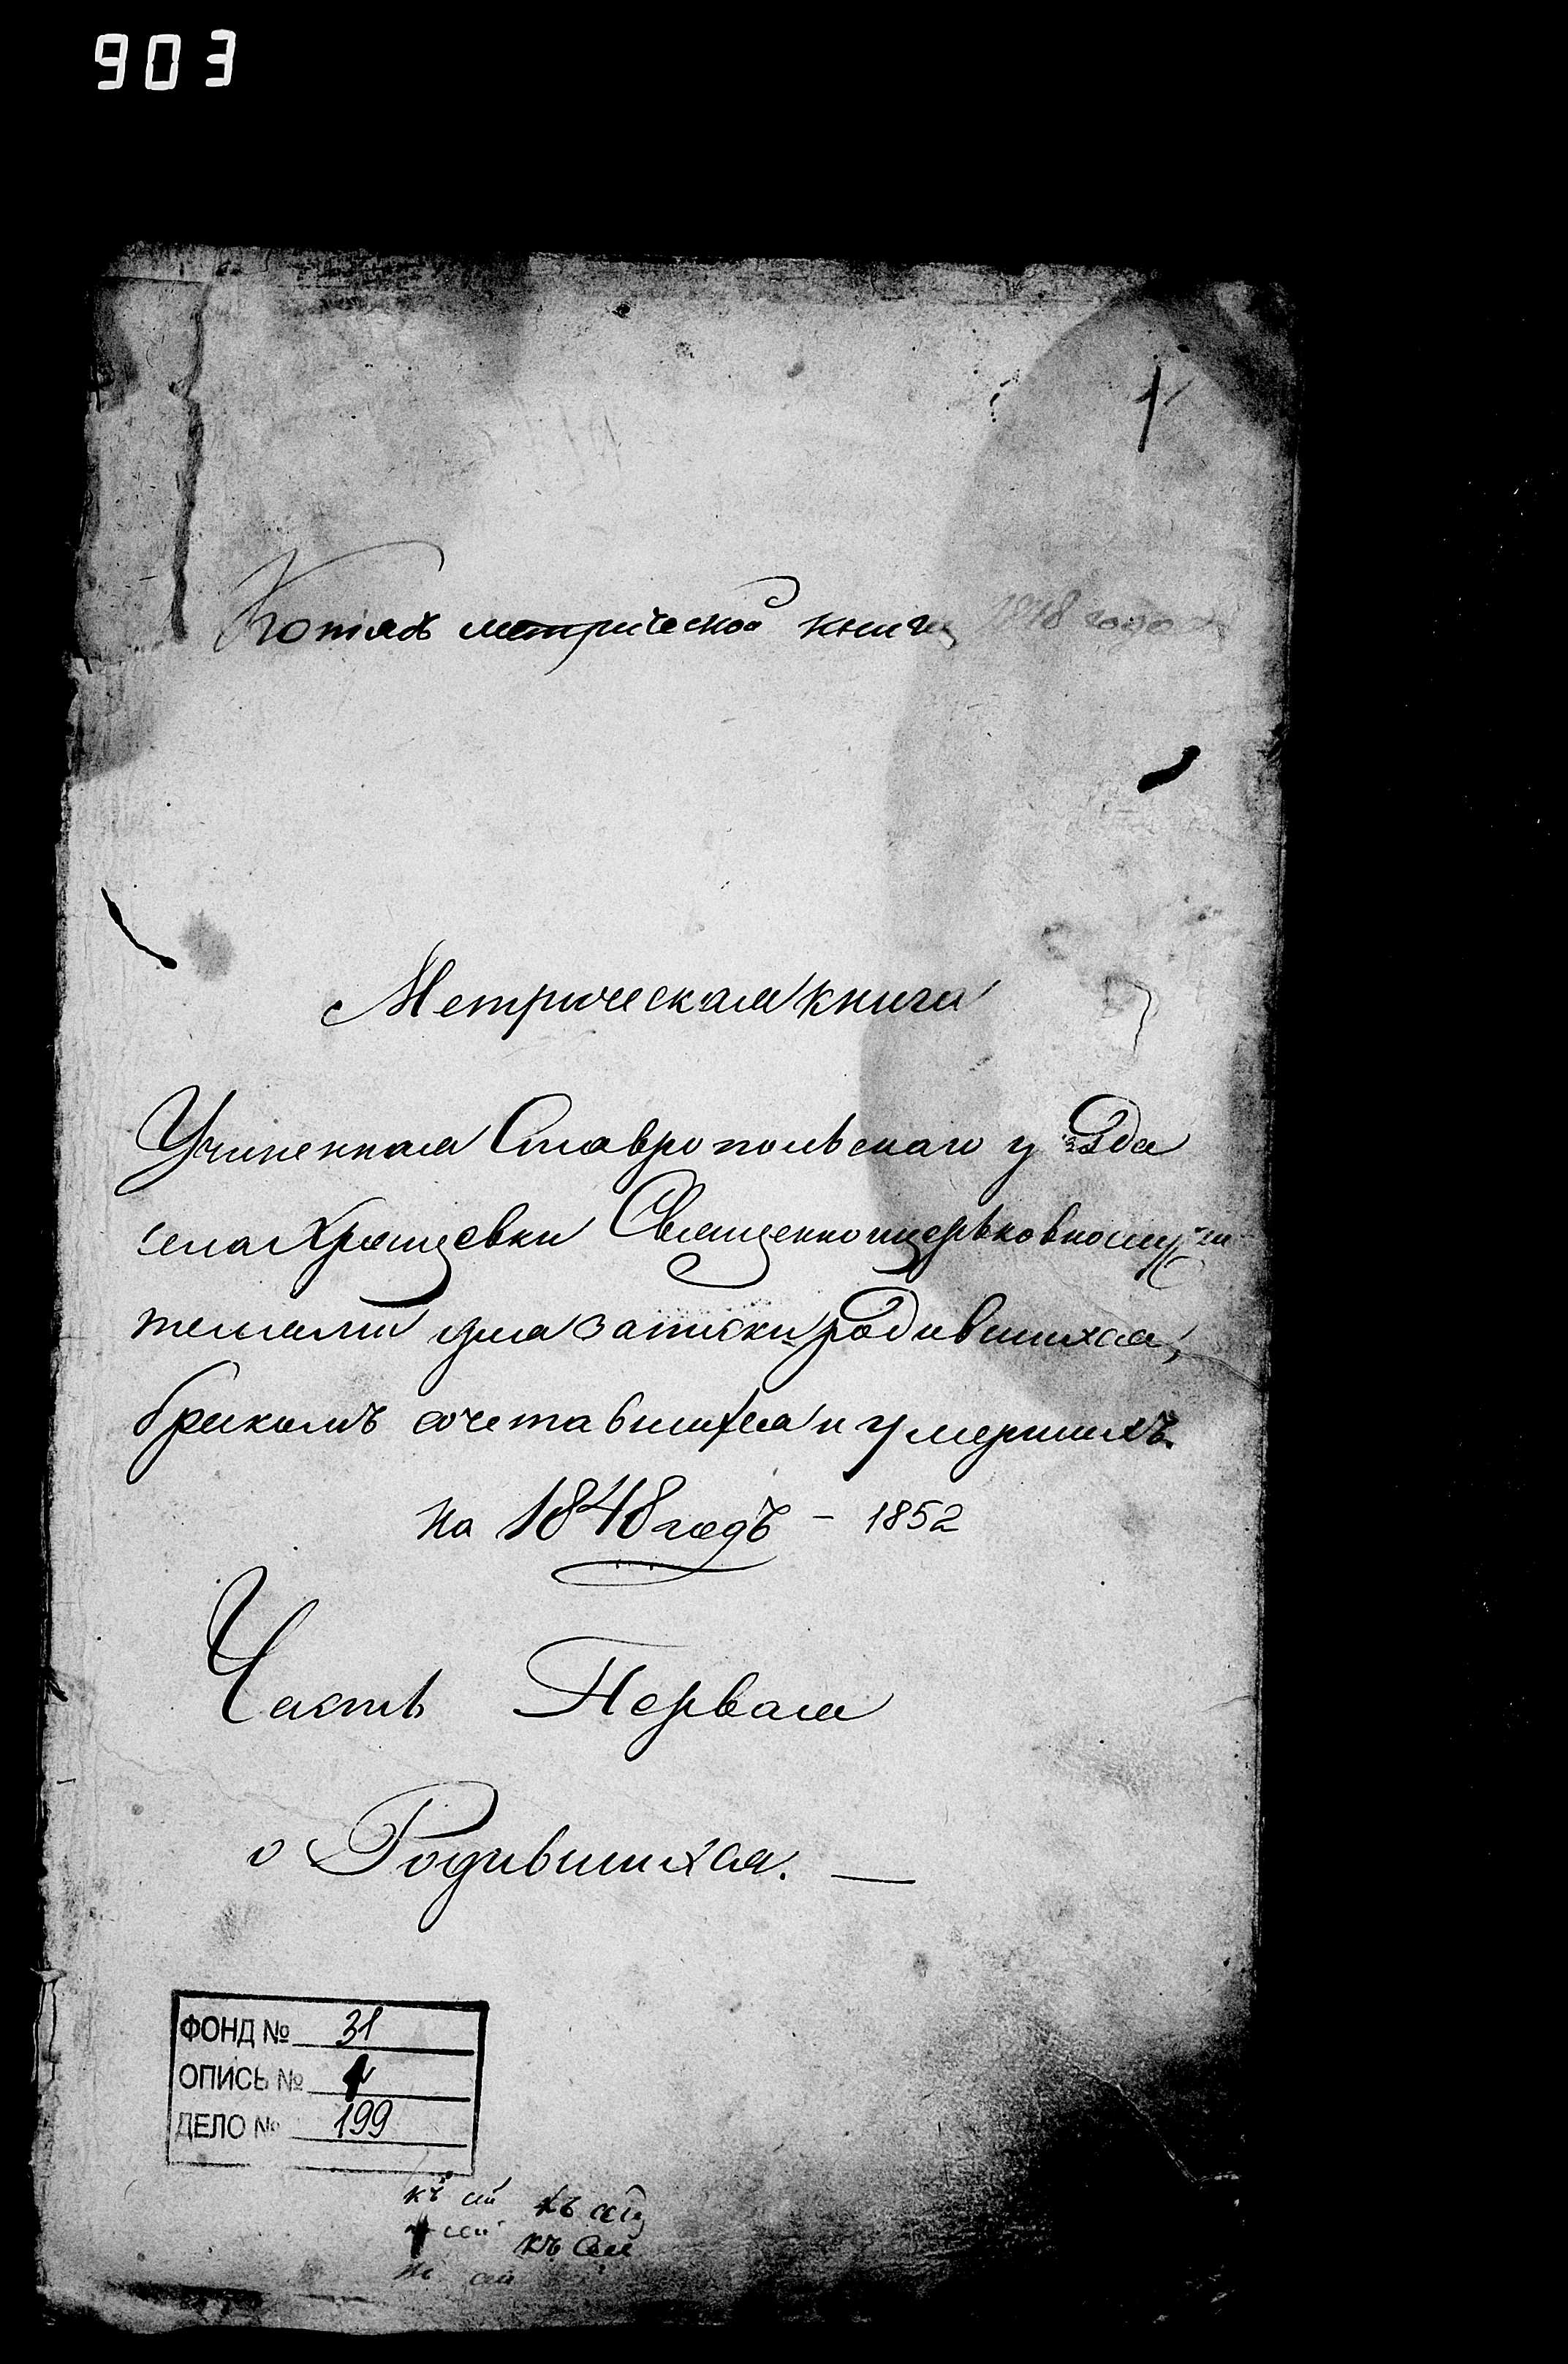 903
1
Копiя съ метрической книги 1848 года
Метрическая книга
Учиненная Ставропольскаго уѣзда
села Хрящевки Священноицерьковнослу
жителями для записки родившихся,
бракомъ сочетавшихся и умершихъ.
на 1848 годъ – 1852
Часть Первая
о Родившихся. —
ФОНД № 31
ОПИСЬ № 1
ДЕЛО № 199
къ
къ
къ